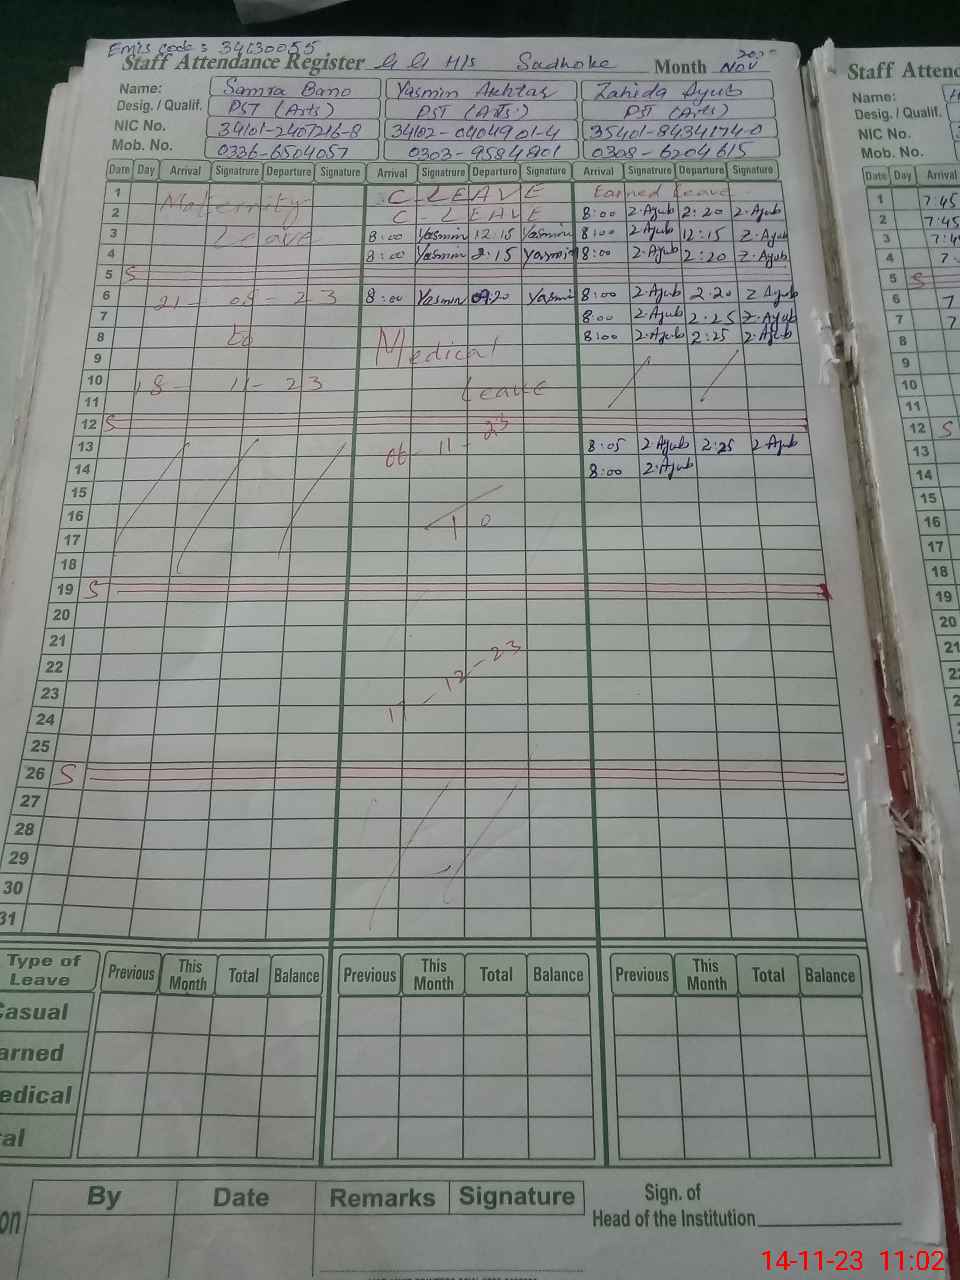 Emis code: 34130055
Staff Attendance Register G G H/S Sadhoke Month Nov
Name: Samra Bano Yasmin Akhtar Zahida Ayub
Desig. / Qualif. PST (Arts) PST (Arts) PST (Arts)
NIC No. 34101-2407216-8 34102-0404901-4 35401-8434174-0
Mob. No. 0336-6504057 0303-9584801 0308-6204615
Date Day Arrival Signatrure Departure Signature Arrival Signatrure Departure Signature Arrival Signatrure Departure Signature
1 Maternity C-LEAVE Earned Leave
2 C-LEAVE 8:00 Z.Ayub 2:20 Z.Ayub
3 Leave 8:00 Yasmin 12:15 Yasmin 8:00 Z.Ayub 12:15 Z.Ayub
4 8:00 Yasmin 2:15 Yasmin 8:00 Z.Ayub 2:20 Z.Ayub
5 S
6 21-08-23 8:00 Yasmin 09:20 Yasmin 8:00 Z.Ayub 2.20 Z Ayub
7 8:00 Z.Ayub 2:25 Z.Ayub
8 to Medical 8:00 Z.Ayub 2:25 Z.Ayub
9
10 18-11-23 Leave
11
12 S
13 06-11-23 8:05 Z.Ayub 2:25 Z.Ayub
14 8:00 Z.Ayub
15
16 To
17
18
19 S
20
21
22
23 17-12-23
24
25
26 S
27
28
29
30
31
Type of Leave Previous This Month Total Balance Previous This Month Total Balance Previous This Month Total Balance
Casual
arned
edical
tal
By Date Remarks Signature Sign. of
on Head of the Institution
Staff Attend
Name: H
Desig. / Qualif.
NIC No.
Mob. No.
Date Day Arrival
1 7:45
2 7:45
3
4
5 S
6
7
8
9
10
11
12 S
13
14
15
16
17
18
19
20
21
14-11-23 11:02